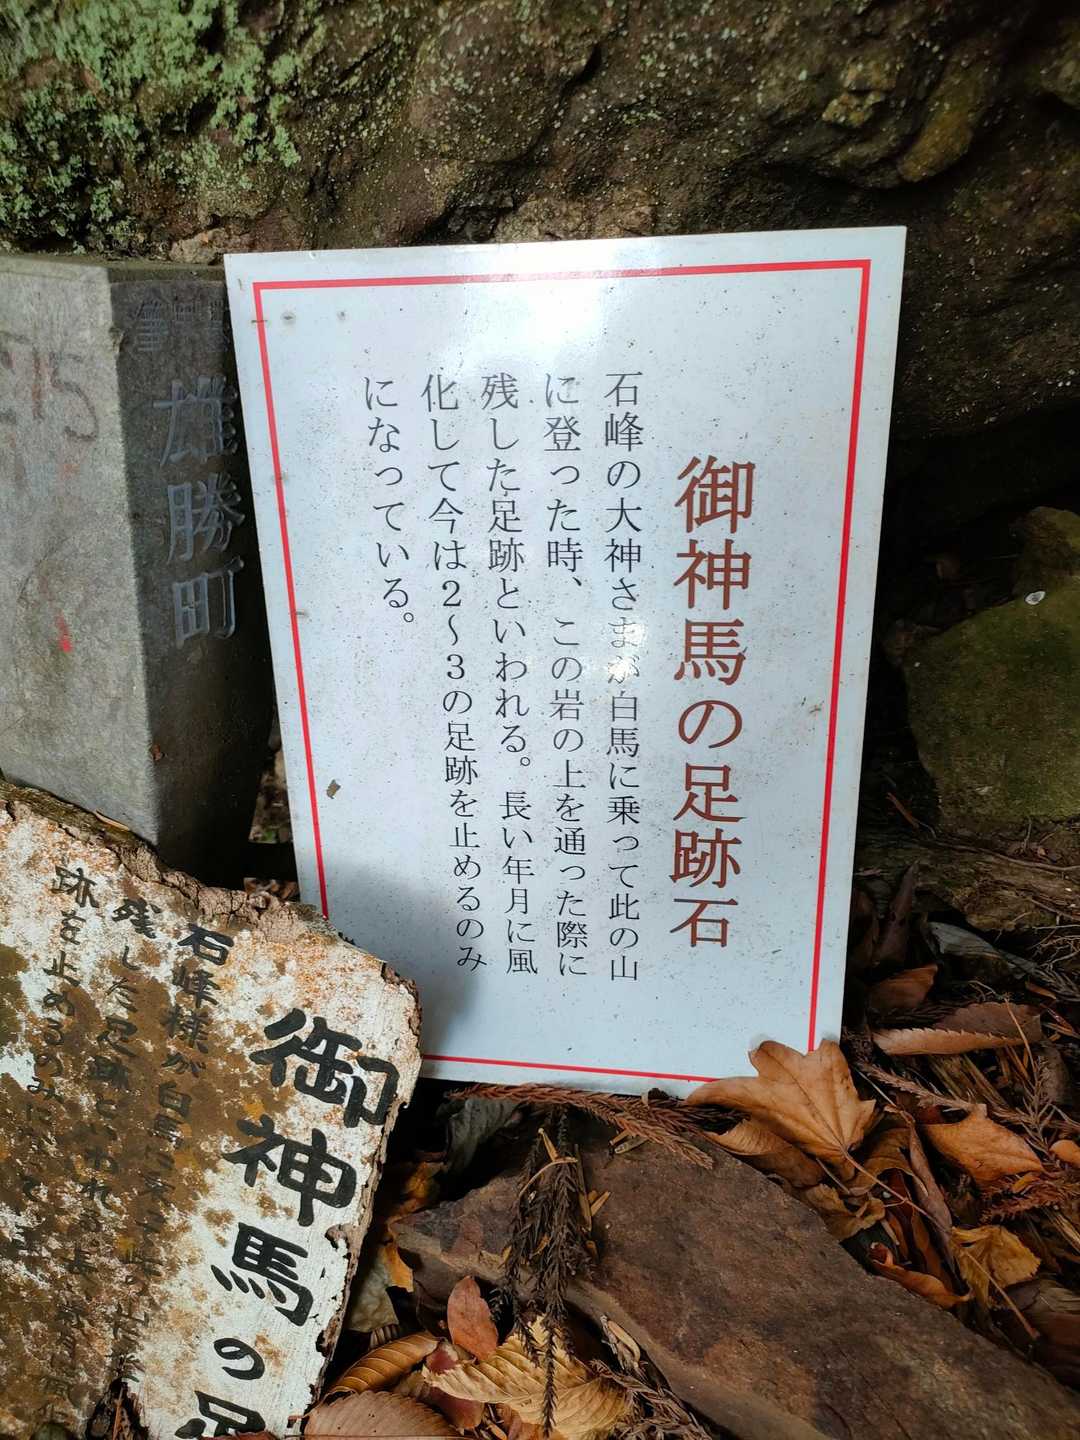 御神馬の足跡石
石峰の大神さまが白馬に乗って此の山
に登った時、この岩の上を通った際に
残した足跡といわれる。長い年月に風
化して今は2〜3の足跡を止めるのみ
になっている。
雄勝町
御神馬の足
石峰様が白馬に
残した足跡といわれる
跡を止めるのみ